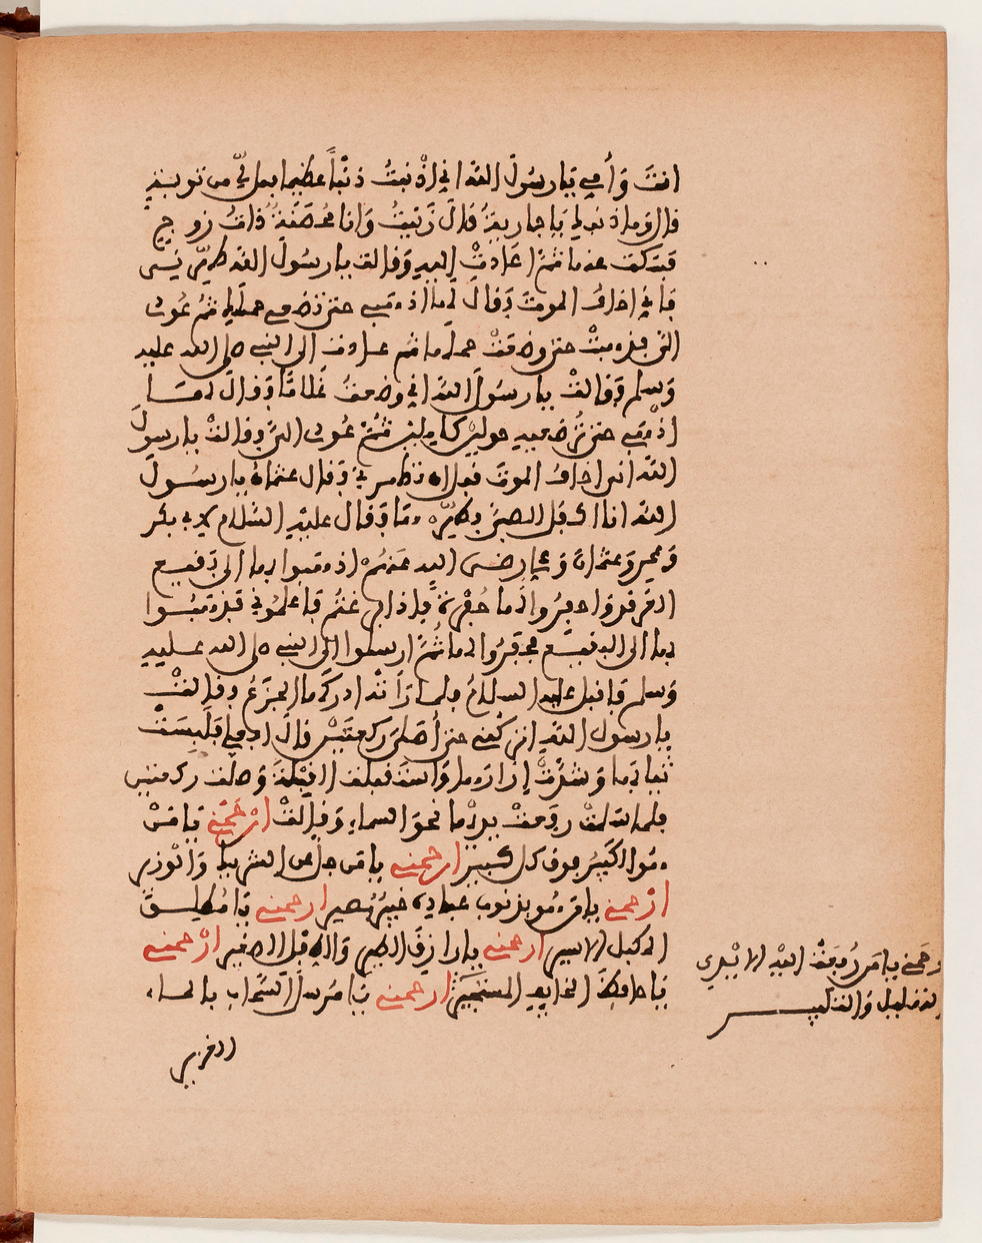 انتَ وَأمي يَا رسُولَ اللهِ اني اذْنبتُ ذنْباً عظيما بهل لّي من توبةٍ
فال وما ذنبك يَا جاريةُ فالَ زَنَيتُ وَانا مُحْصَنةٌ ذاتُ زوج
فسكت عنها ثمّ اعَادتْ اليه وَفالت يا رسُولَ الله طهّرْني
فإني اخافُ الموتَ بَفالَ لها اذهبي حتى تضعي حملك ثمّ عُودي
الي فذهبتْ حتى وضعَتْ حملها ثم عادت الى النبي صلى الله عليه
وَسلم وَفالتْ يا رسُولَ اللهِ اني وضعتُ غلامًا بَفالَ لهَا
اذْهبي حتى تُرْضعيه حوليْن كاملين ثمّ عُودي اليّ بفالتْ يا رسولَ
الله اني اخافُ الموتَ فبل ان تطهرني بَفال عثمانُ يا رسُولَ
الله انا اكفل الصبيّ بطهّرْها بَفال عليْهِ السّلام لابي بكر
وَعمر وَعثمان وَعلي رضي الله عَنهُمْ اذهبوا بها الى بَفيع
الغرفد واحفِرُوا لها حُفْرة فإذا برغتُم فاعلمُوني فذهَبُوا
بها الى البفيع فحفرُوا لها ثمّ ارسلوا الى النبي صلى الله عليه
وَسلم فافبل عليه السلامُ بلما رَأتْه ادركَها الجزَعُ وفالتْ
يا رسول اللهِ اتركْني حتى أُصَلي ركعتَيْن فالَ افعلي فلَبسَتْ
ثيابَها وَشدّتْ إزارَها وَاستفبلت الفبْلةَ وَصلت ركعتين
بلما سلمتْ ربعتْ يدَها نحوَ السماء وَفالتْ ارْحَمْني يَا مَنْ
هُوا اكبَرُ بوق كل كبير ارحمني يا من جل عن الشريك وَالْوزير
ارْحمني يا من هُو بذنوب عباده خبيرٌ بصير ارحمني يَا مُطلِقَ
المكبل الاسير ارحمني يا رازقَ الطير وَالطفل الصغير ارْحمني
يَا حابظَ الخايف المستجيرْ ارحمني يَا مُرسلَ السّحاب بالماء
الغزير
ارحَمني يا مَن رُبعَتْ اليْهِ الايْدي
بالتهليل وَالتكبير